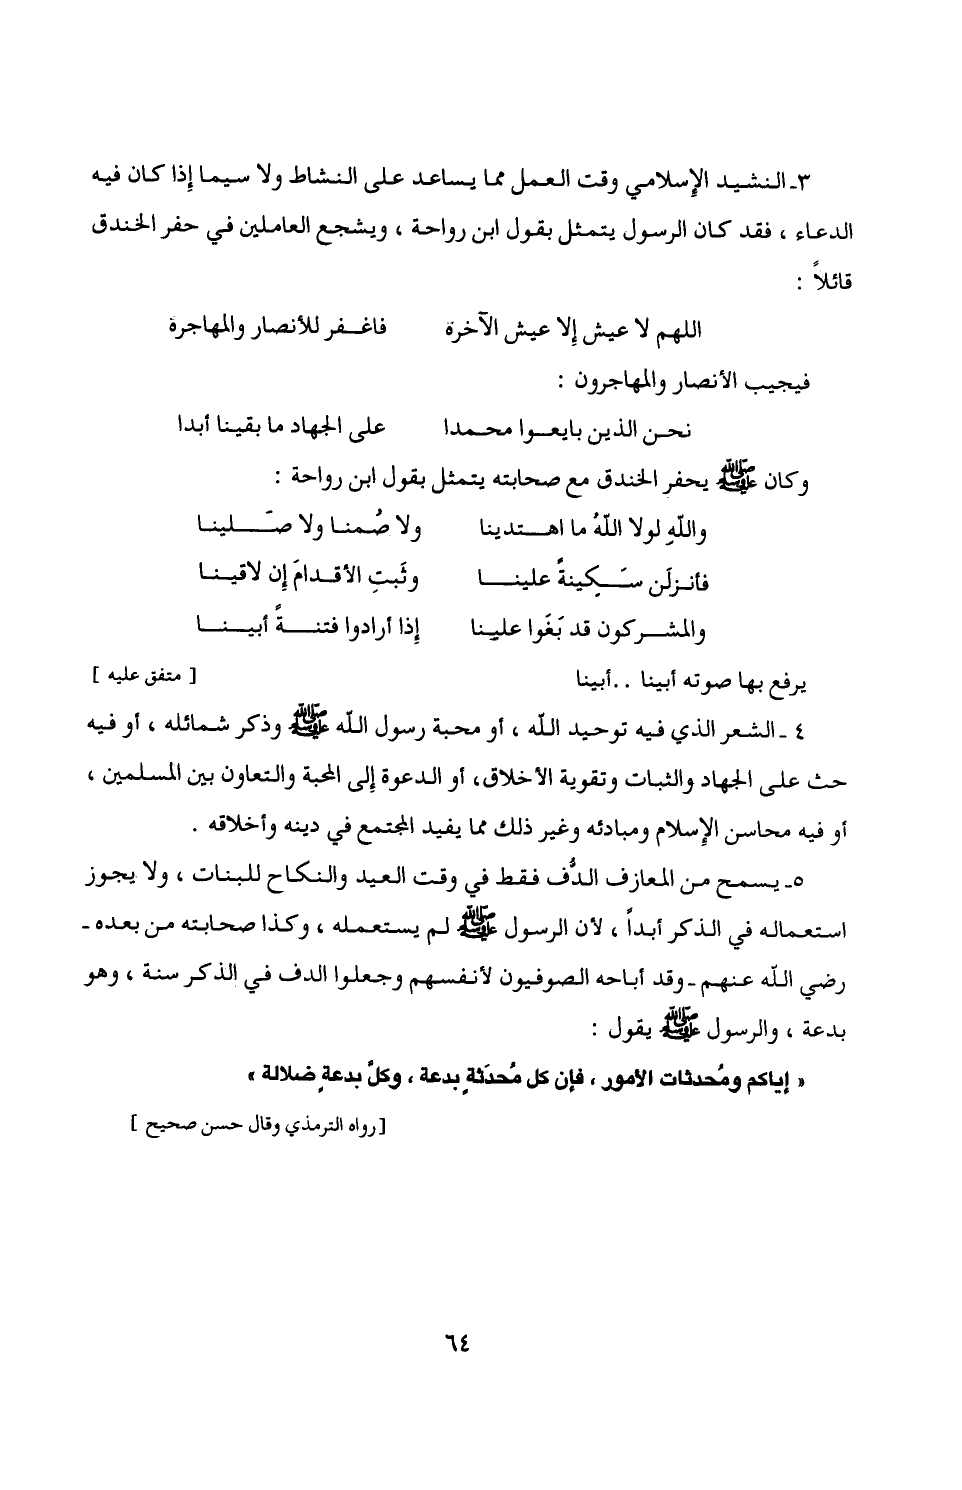 ٣ـ النشيد الإسلامي وقت العمل مما يساعد على النشاط ولا سيما إذا كان فيه
الدعاء ، فقد كان الرسول يتمثل بقول ابن رواحة ، ويشجع العاملين في حفر الخندق
قائلاً :
اللهم لا عيش إلا عيش الآخرة فاغـفر للأنصار والمهاجرة
فيجيب الأنصار والمهاجرون :
نحـن الذين بايعـوا محمدا على الجهاد ما بقينا أبدا
وكان ﷺ يحفر الخندق مع صحابته يتمثل بقول ابن رواحة :
واللّهِ لولا اللّهُ ما اهـتدينا ولا صُمنا ولا صَـلينا
فأنزلَن سَـكِينةً علينـا وثَبتِ الأقدامَ إن لاقينـا
والمشـركون قد بَغَوا علينا إذا أرادوا فتنـةً أبينـا
يرفع بها صوته أبينا . . أبينا [ متفق عليه ]
٤ ـ الشعر الذي فيه توحيد اللّه ، أو محبة رسول اللّه ﷺ وذكر شمائله ، أو فيه
حث على الجهاد والثبات وتقوية الأخلاق، أو الدعوة إلى المحبة والتعاون بين المسلمين ،
أو فيه محاسن الإسلام ومبادئه وغير ذلك مما يفيد المجتمع في دينه وأخلاقه .
٥ـ يسمح من المعازف الدُّف فقط في وقت العيد والنكاح للبنات ، ولا يجوز
استعماله في الذكر أبداً ، لأن الرسول ﷺ لم يستعمله ، وكذا صحابته من بعده ـ
رضي اللّه عنهم ـ وقد أباحه الصوفيون لأنفسهم وجعلوا الدف في الذكر سنة ، وهو
بدعة ، والرسول ﷺ يقول :
« إياكم ومُحدثات الأمور ، فإن كل مُحدَثةٍ بدعة ، وكلَّ بدعةٍ ضلالة »
[رواه الترمذي وقال حسن صحيح ]
٦٤